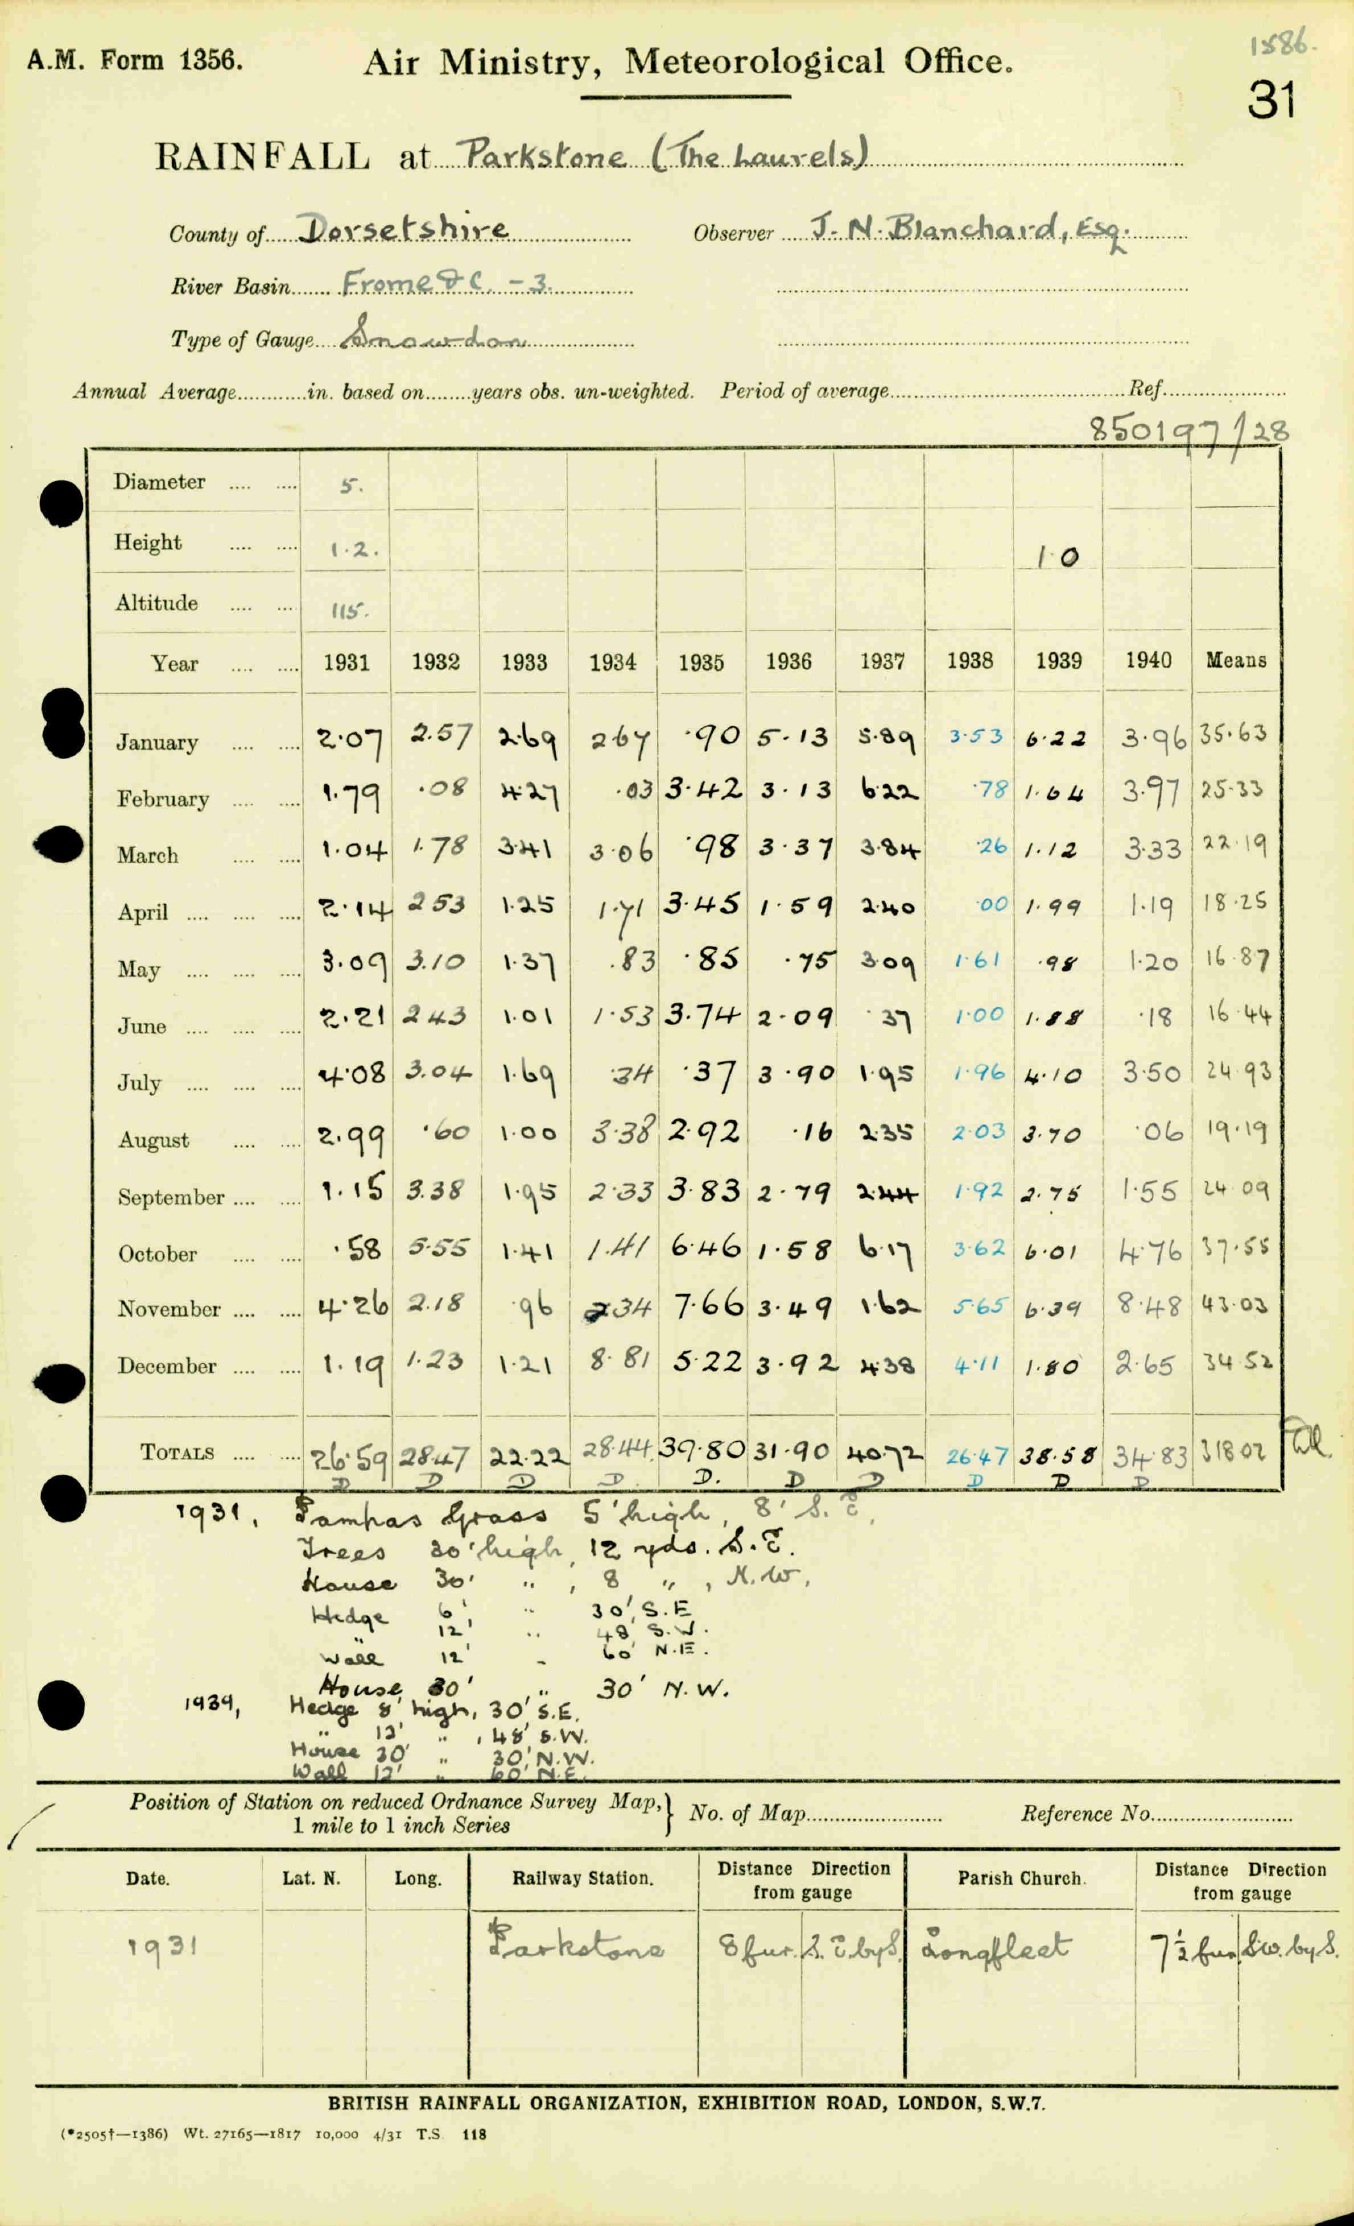 1886.
A.M. Form 1356. Air Ministry, Meteorological Office.
31
RAINFALL at Parkstone (The Laurels)
County of Dorsetshire Observer J. N. Blanchard, Esq.
River Basin Frome &C. - 3.
Type of Gauge Snowdon
Annual Average............in. based on........years obs. un-weighted. Period of average........................Ref.....................
850197/28
Diameter .... .... 5.
Height .... .... 1.2. 1.0
Altitude .... .... 115.
Year .... .... 1931 1932 1933 1934 1935 1936 1937 1938 1939 1940 Means
January .... .... 2.07 2.57 2.69 2.67 .90 5.13 5.89 3.53 6.22 3.96 35.63
February .... .... 1.79 .08 4.27 .03 3.42 3.13 6.22 .78 1.64 3.97 25.33
March .... .... 1.04 1.78 3.41 3.06 .98 3.37 3.84 .26 1.12 3.33 22.19
April .... .... .... 2.14 2.53 1.25 1.71 3.45 1.59 2.40 .00 1.99 1.19 18.25
May .... .... .... 3.09 3.10 1.37 .83 .85 .75 3.09 1.61 .98 1.20 16.87
June .... .... .... 2.21 2.43 1.01 1.53 3.74 2.09 .37 1.00 1.88 .18 16.44
July .... .... .... 4.08 3.04 1.69 .34 .37 3.90 1.95 1.96 4.10 3.50 24.93
August .... .... 2.99 .60 1.00 3.38 2.92 .16 2.35 2.03 3.70 .06 19.19
September .... .... 1.15 3.38 1.95 2.33 3.83 2.79 2.44 1.92 2.75 1.55 24.09
October .... .... .58 5.55 1.41 1.41 6.46 1.58 6.17 3.62 6.01 4.76 37.55
November .... .... 4.26 2.18 .96 2.34 7.66 3.49 1.62 5.65 6.39 8.48 43.03
December .... .... 1.19 1.23 1.21 8.81 5.22 3.92 4.38 4.11 1.80 2.65 34.52
TOTALS .... .... 26.59 28.47 22.22 28.44 39.80 31.90 40.72 26.47 38.58 34.83 318.02
D D D D D. D D D D D
1931, Pampas Grass 5' high, 8' S.E,
Trees 20' high, 12 yds. S.E.
House 30' " , 8 " , N.W,
Hedge 6' " 30' S.E
" 12' " 48' S.W.
Wall 12' " 60' N.E.
House 30' " 30' N.W.
1939, Hedge 8' high, 30' S.E.
" 12' " , 48' S.W.
House 30' " 30' N.W.
Wall 12' " 60' N.E.
Position of Station on reduced Ordnance Survey Map,} No. of Map........................ Reference No.........................
1 mile to 1 inch Series
Date. Lat. N. Long. Railway Station. Distance Direction from gauge Parish Church. Distance Direction from gauge
1931 Parkstone 8 fur. S.E. by S. Longfleet 7½ fur. S.W. by S.
BRITISH RAINFALL ORGANIZATION, EXHIBITION ROAD, LONDON, S.W.7.
(*2505†—1386) Wt. 27165—1817 10,000 4/31 T.S. 118